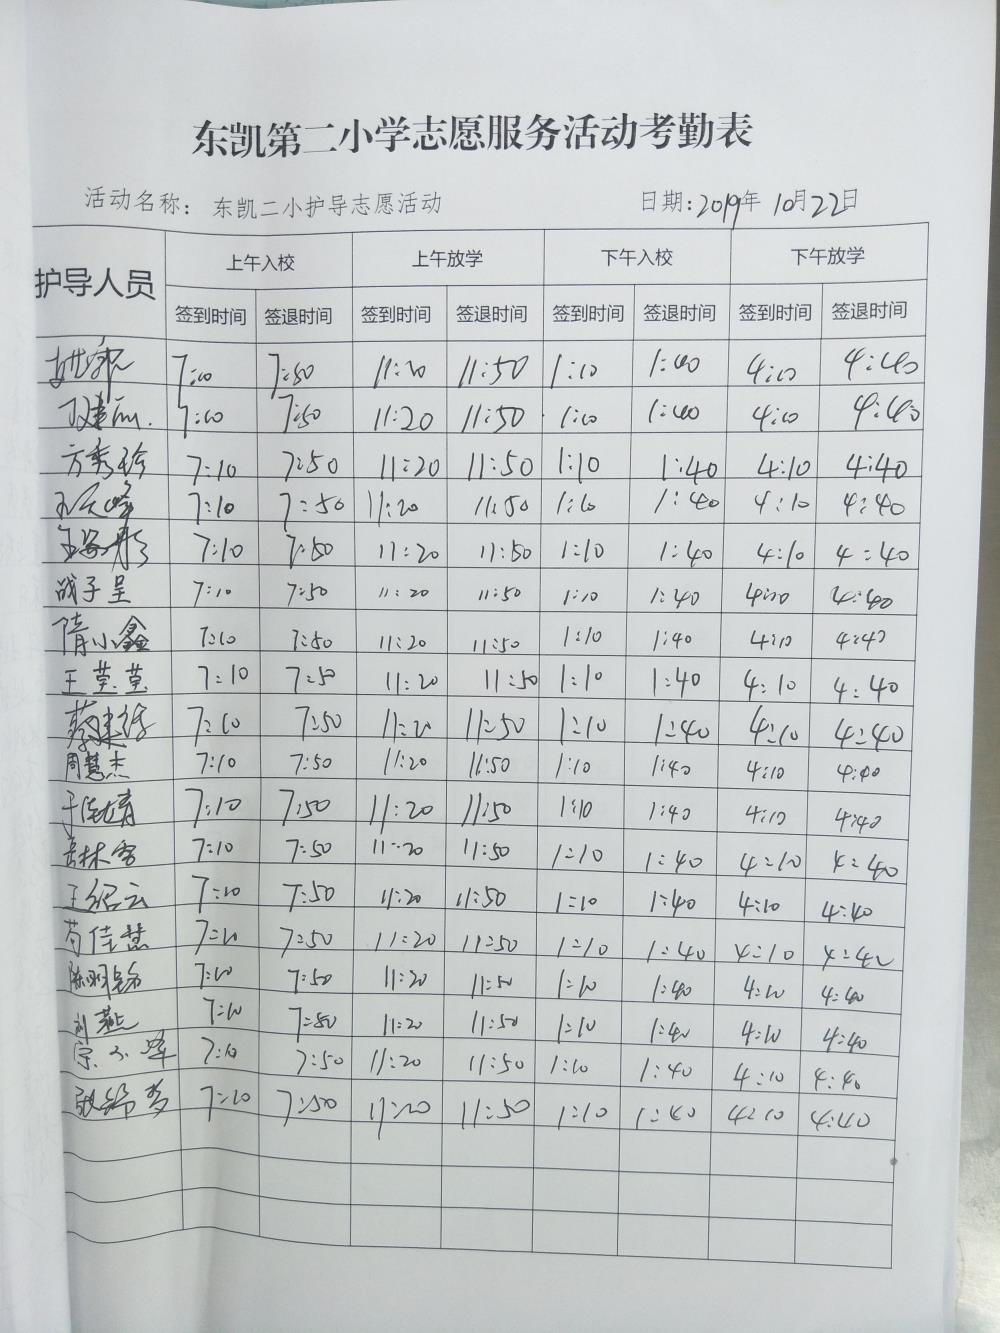 东凯第二小学志愿服务活动考勤表
活动名称： 东凯二小护导志愿活动 日期:2019年10月22日
护导人员 上午入校 上午放学 下午入校 下午放学
签到时间 签退时间 签到时间 签退时间 签到时间 签退时间 签到时间 签退时间
7:10 7:50 11:20 11:50 1:10 1:40 4:10 4:40
7:10 7:50 11:20 11:50 1:10 1:40 4:10 4:40
方秀珍 7:10 7:50 11:20 11:50 1:10 1:40 4:10 4:40
7:10 7:50 11:20 11:50 1:10 1:40 4:10 4:40
7:10 7:50 11:20 11:50 1:10 1:40 4:10 4:40
战子呈 7:10 7:50 11:20 11:50 1:10 1:40 4:10 4:40
隋小鑫 7:10 7:50 11:20 11:50 1:10 1:40 4:10 4:40
王莹莹 7:10 7:50 11:20 11:50 1:10 1:40 4:10 4:40
7:10 7:50 11:20 11:50 1:10 1:40 4:10 4:40
周慧杰 7:10 7:50 11:20 11:50 1:10 1:40 4:10 4:40
7:10 7:50 11:20 11:50 1:10 1:40 4:10 4:40
7:10 7:50 11:20 11:50 1:10 1:40 4:10 4:40
王绍云 7:10 7:50 11:20 11:50 1:10 1:40 4:10 4:40
苟佳慧 7:10 7:50 11:20 11:50 1:10 1:40 4:10 4:40
7:10 7:50 11:20 11:50 1:10 1:40 4:10 4:40
刘燕 7:10 7:50 11:20 11:50 1:10 1:40 4:10 4:40
宗小峰 7:10 7:50 11:20 11:50 1:10 1:40 4:10 4:40
7:10 7:50 11:20 11:50 1:10 1:40 4:10 4:40